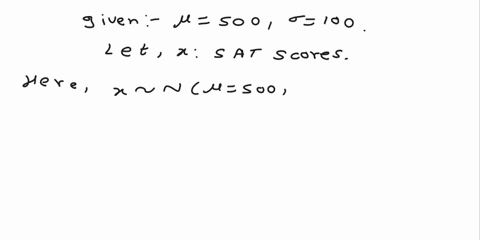 given:- μ = 500, σ = 100.
Let, x: SAT Scores.
Here, x ~ N (μ = 500,